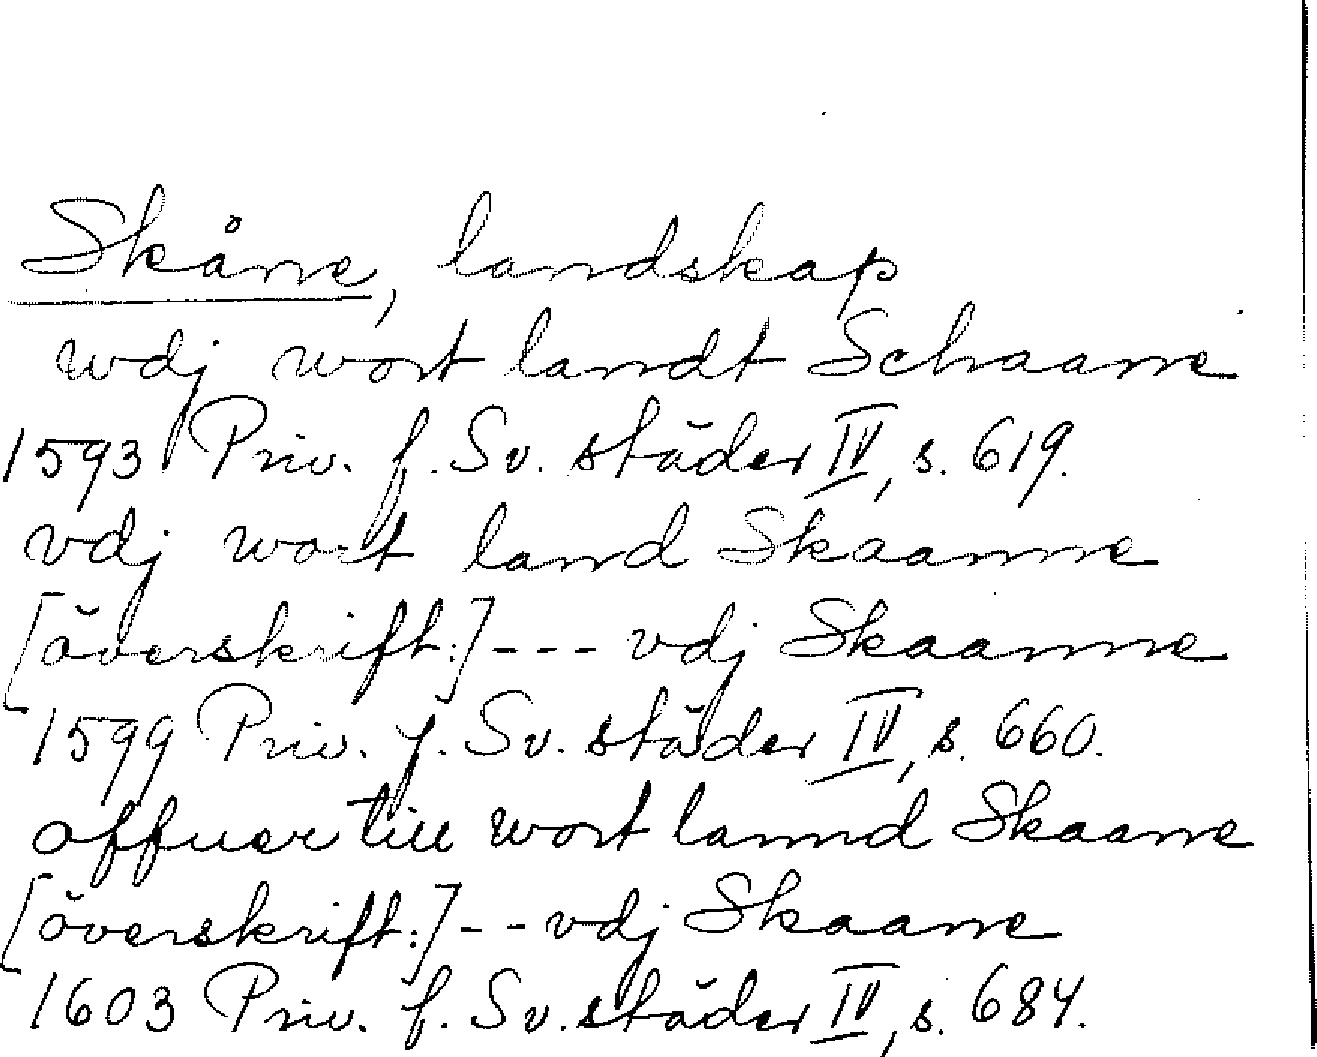 Skåne, landskap
wdj wort landt Schaane
1593 Priv. f. Sv. städer IV, s. 619.
vdj wort land Skaanne
[överskrift:] --- vdj Skaanne
1599 Priv. f. Sv. städer IV, s. 660.
offuer till wort lannd Skaane
[överskrift:] -- vdj Skaane
1603 Priv. f. Sv. städer IV, s. 684.